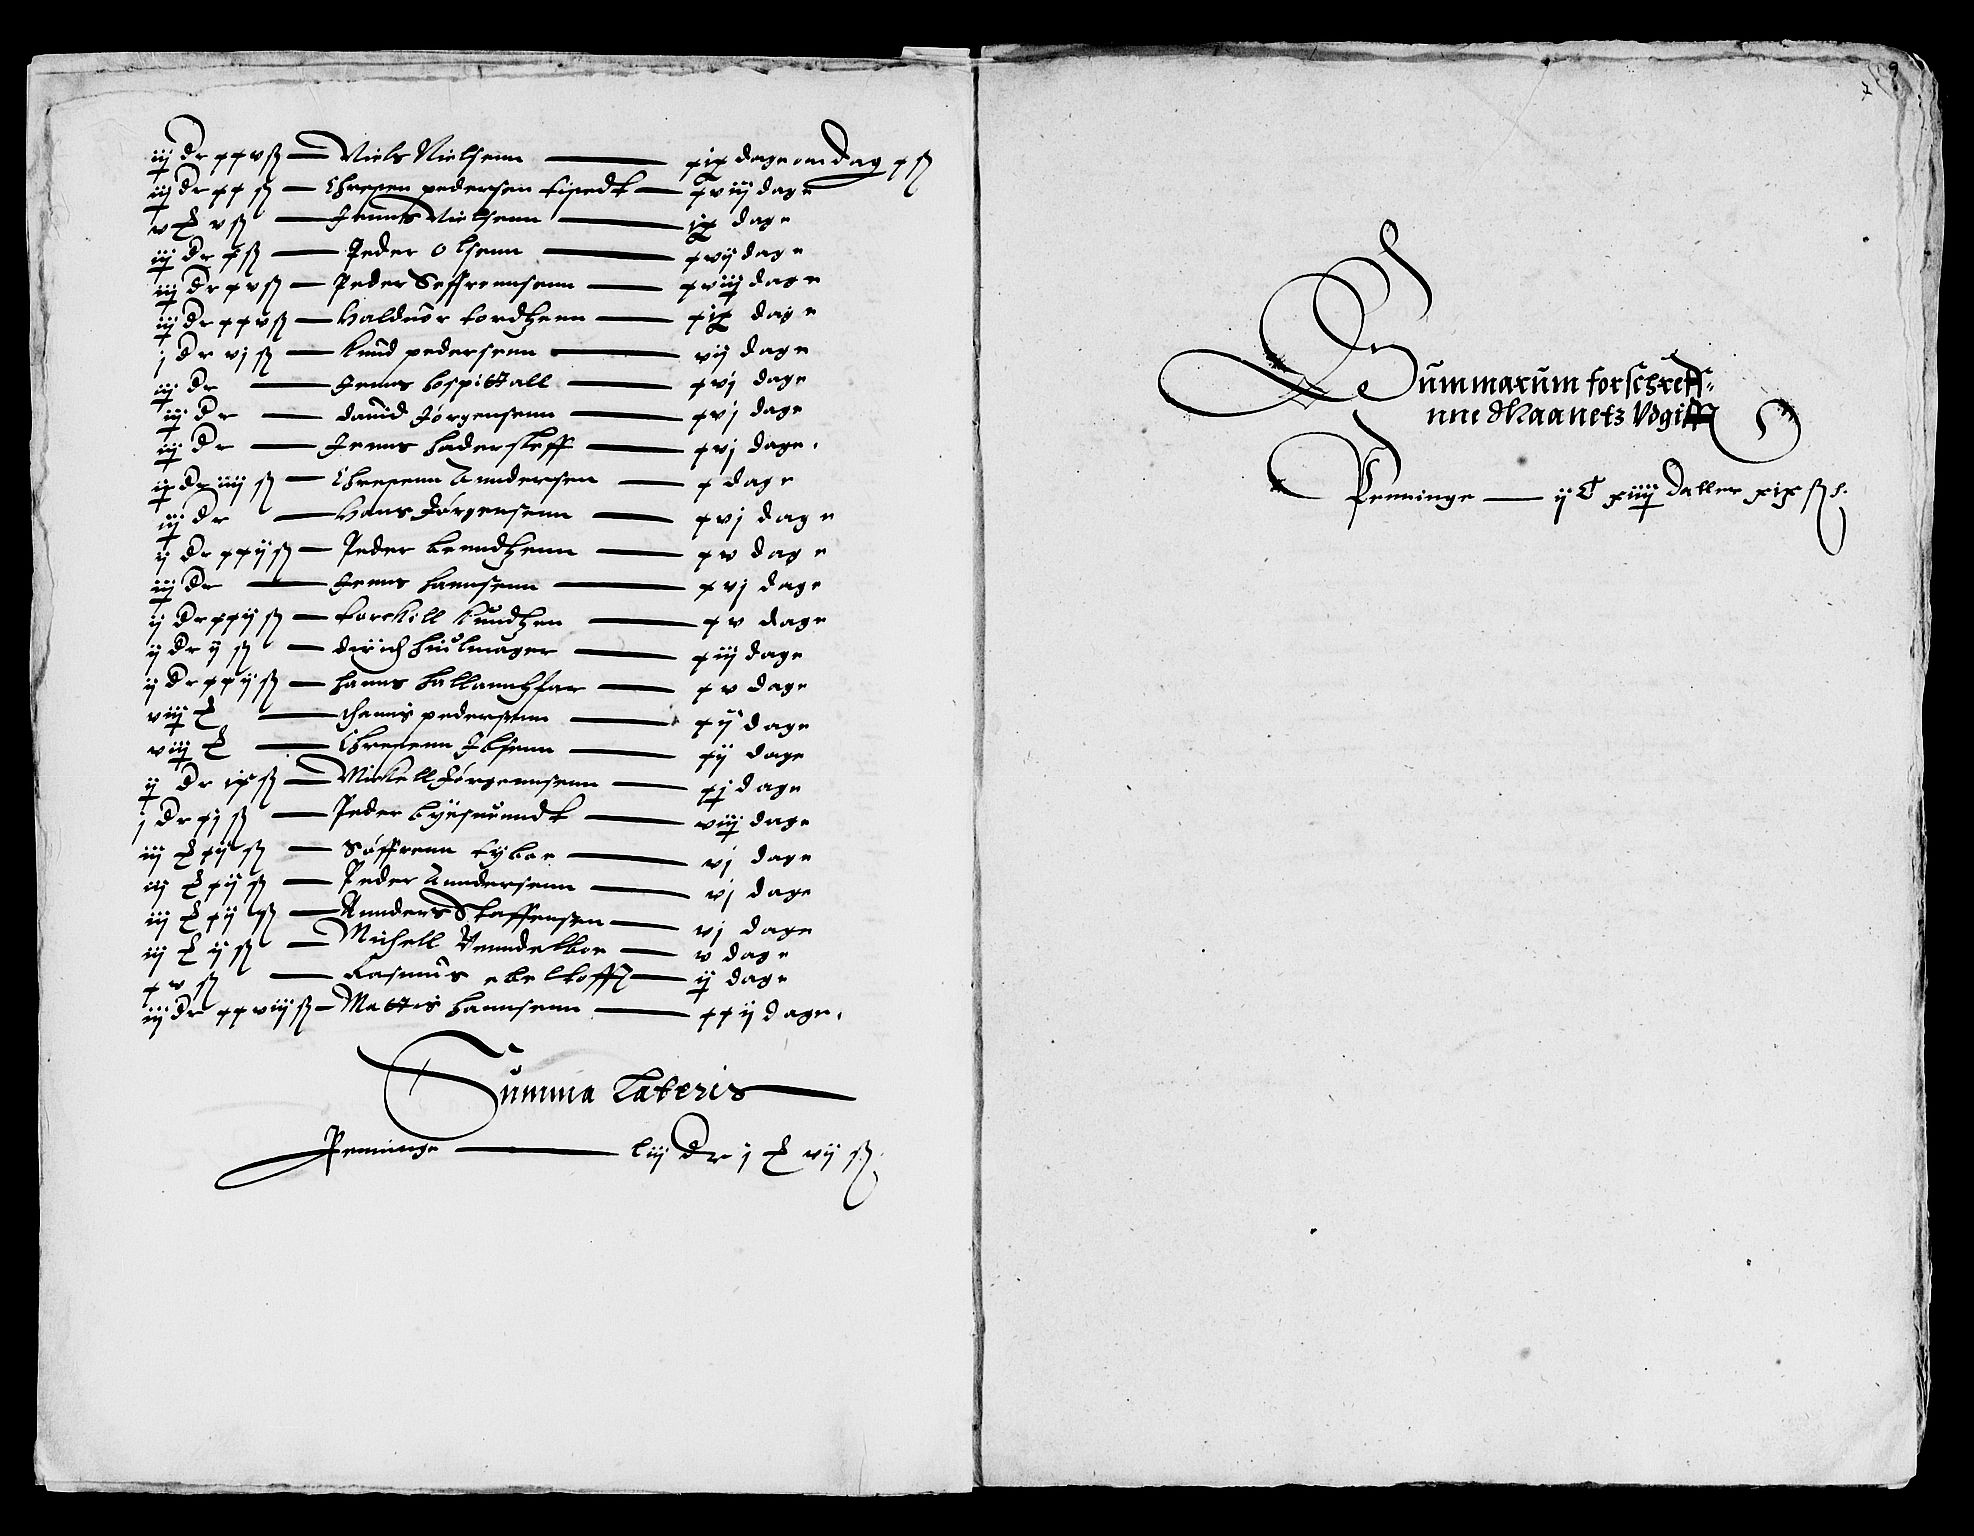 iij dr xxv ß — Niels Nielsenn — xix dage om dag x ß
iij dr xx ß — Chresten pedersen — xviij dage
v ß — Jenns Nielsenn — ix dage
iij dr x ß — Peder Olsenn — xvij dage
iij dr xv ß — Peder Seffrennsenn — xviij dage
iij dr xxv ß — Halduor tordtzenn — xix dage
j dr vj ß — Knud pedersenn — vij dage
iij dr — Jenns hospittall — xvj dage
iij dr — dauid Jørgensenn — xvj dage
iij dr — Jenns hadersleff — xvj dage
ij dr iiij ß — Chrestenn Anndersen — x dage
iij dr — Hans Jørgensenn — xvj dage
ij dr xxij ß — Peder berndtzenn — xv dage
iij dr — Jenns hannsenn — xvj dage
ij dr xxij ß — torckill knudtzen — xv dage
ij dr ij ß — dirich huilmager — xiij dage
ij dr xxij ß — hanns hallanndtzfar — xv dage
viij — pedersenn — xij dage
viij — Chrestenn Ibsenn — xij dage
ij dr ix ß — Mickell Jørgennsenn — xj dage
j dr xj ß — Peder — viij dage
iij xij ß — Søffrenn tyboe — vj dage
iij xij ß — Peder Anndersenn — vj dage
iij xij ß — Annders Staffensen — vj dage
iij ij ß — Michell Venndelboe — v dage
xv ß — Rasmus ebeltofft — ij dage
iij dr xxviij ß — Mattis hannsenn — xxij dage
Summa Lateris
Penninge — liij dr j vij ß
Summarum forschreff-
nne Maanetz Vdgifft
Penninge — ij C xiiij Daller xix ß l.